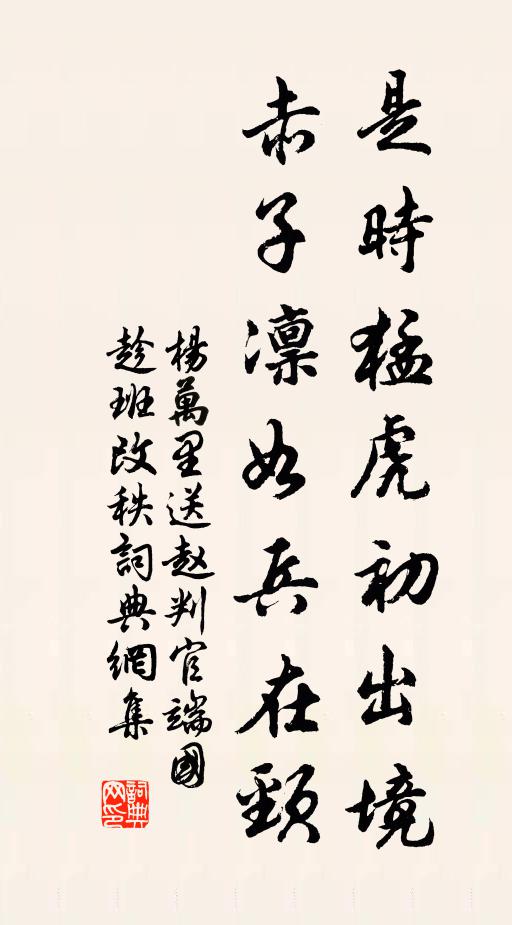 是時猛虎初出境
赤子凛如兵在頸
楊萬里送赵判官端國
趁班改秩詞典網集
詞典網印